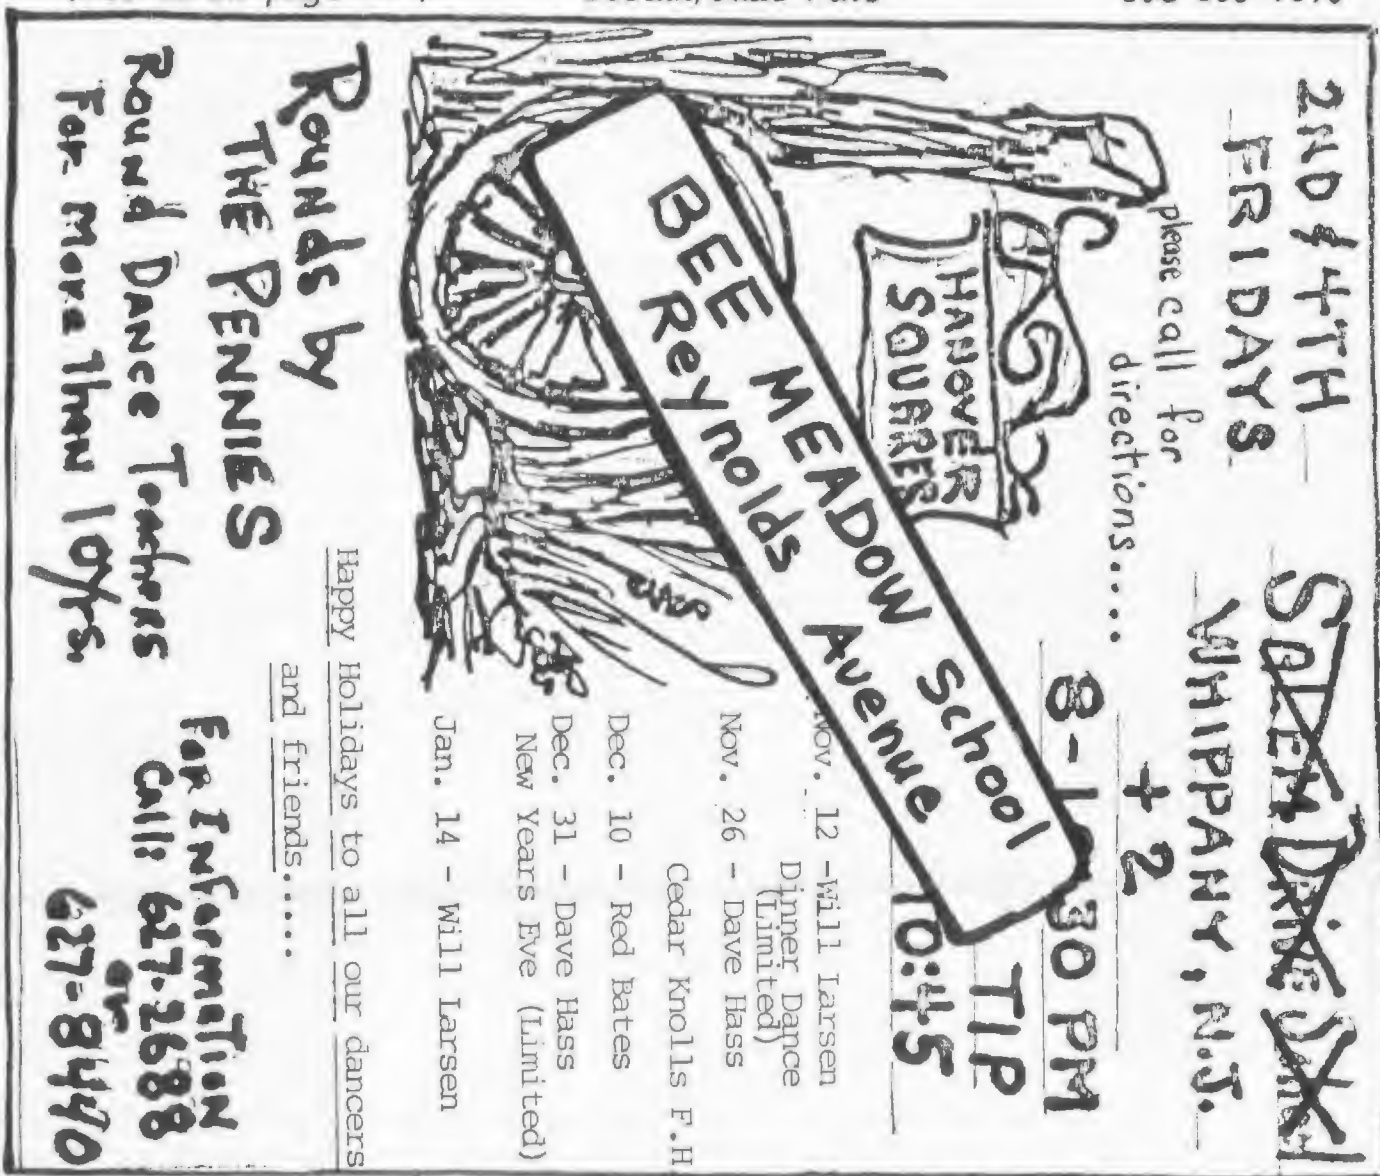 2ND & 4TH
FRIDAYS
WHIPPANY, N.J.
please call for
directions....
+ 2
8-
30 PM
TIP
10:45
HANOVER
SQUARES
BEE MEADOW School
Reynolds Avenue
Nov. 12 -Will Larsen
Dinner Dance
(Limited)
Nov. 26 - Dave Hass
Cedar Knolls F.H
Dec. 10 - Red Bates
Dec. 31 - Dave Hass
New Years Eve (Limited)
Jan. 14 - Will Larsen
Happy Holidays to all our dancers
and friends.....
Rounds by
THE PENNIES
Round Dance Teachers
For More Than 10 yrs.
For Information
Call: 627-2688
or
627-8440